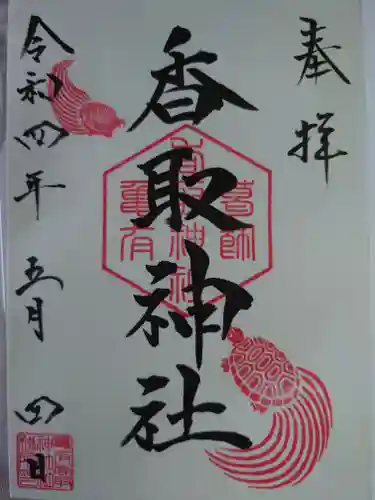 奉拝
香取神社
葛飾
香取神社
亀有
令和四年 五月 四日